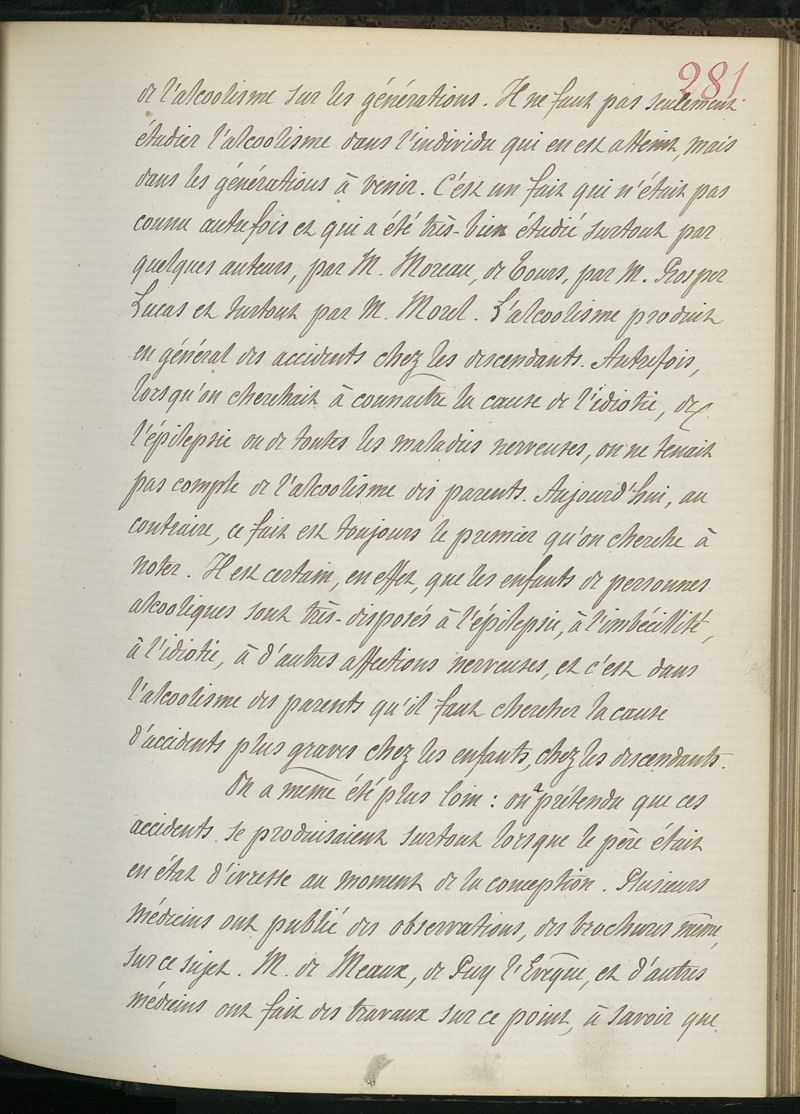 281.
de l'alcoolisme sur les générations. Il ne faut pas seulement
étudier l'alcoolisme dans l'individu qui en est atteint, mais
dans les générations à venir. C'est un fait qui n'était pas
connu autrefois et qui a été très-bien étudié surtout par
quelques auteurs, par M. Moreau, de Tours, par M. Prosper
Lucas et surtout par M. Morel. L'alcoolisme produit
en général des accidents chez les descendants. Autrefois,
lorsqu'on cherchait à connaître la cause de l'idiotie, de
l'épilepsie ou de toutes les maladies nerveuses, on ne tenait
pas compte de l'alcoolisme des parents. Aujourd'hui, au
contraire, ce fait est toujours le premier qu'on cherche à
noter. Il est certain, en effet, que les enfants de personnes
alcooliques sont très-disposés à l'épilepsie, à l'imbécillité,
à l'idiotie, à d'autres affections nerveuses, et c'est dans
l'alcoolisme des parents qu'il faut chercher la cause
d'accidents plus graves chez les enfants, chez les descendants.
On a même été plus loin : on a prétendu que ces
accidents se produisaient surtout lorsque le père était
en état d'ivresse au moment de la conception. Plusieurs
médecins ont publié des observations, des brochures même,
sur ce sujet. M. de Meaux, de Puy l'Evêque, et d'autres
médecins ont fait des travaux sur ce point, à savoir que